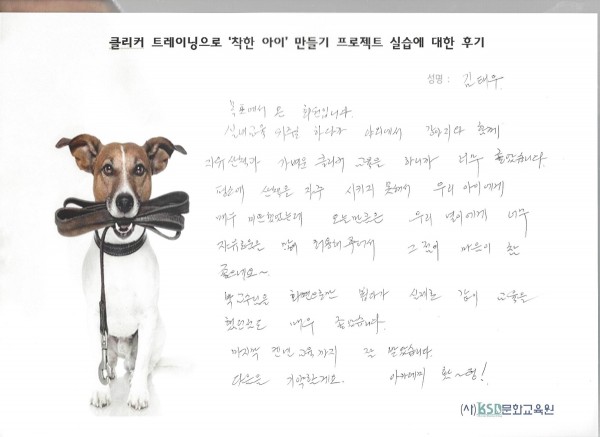 클리커 트레이닝으로 '착한 아이' 만들기 프로젝트 실습에 대한 후기
성명 : 김태우
목포에서 온 회원입니다.
실내교육 위주로 하다가 야외에서 강아지와 함께
자유산책과 가벼운 클리커 교육을 하니까 너무 좋았습니다
평소에 산책을 자주 시키지 못해서 우리 아이에게
매우 미안했었는데 오늘만큼은 우리 아이에게 너무
자유로운 허용해주어서 그것이 마음이 참
좋으네요~
박교수님을 화면으로만 뵙다가 실제로 같이 교육을
했던것도 매우 좋았습니다.
마지막 켄넬 교육까지 잘 받았습니다.
다음을 기약할게요. 화~이팅!
(사)KSD문화교육원